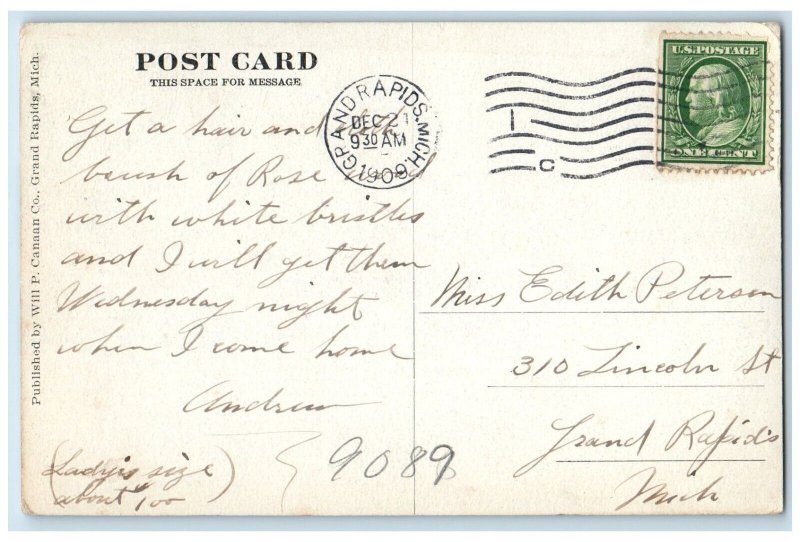 POST CARD
THIS SPACE FOR MESSAGE
Published by Will P. Canaan Co., Grand Rapids, Mich.
GRAND RAPIDS, MICH.
DEC 21
9 30 AM
1909
1
C
U.S. POSTAGE
ONE CENT
Get a hair and
brush of Rose
with white bristles
and I will get them
Wednesday night
when I come home
Andrew
(Ladyis size
about 100)
9089
Miss Edith Peterson
310 Lincoln St
Grand Rapids
Mich